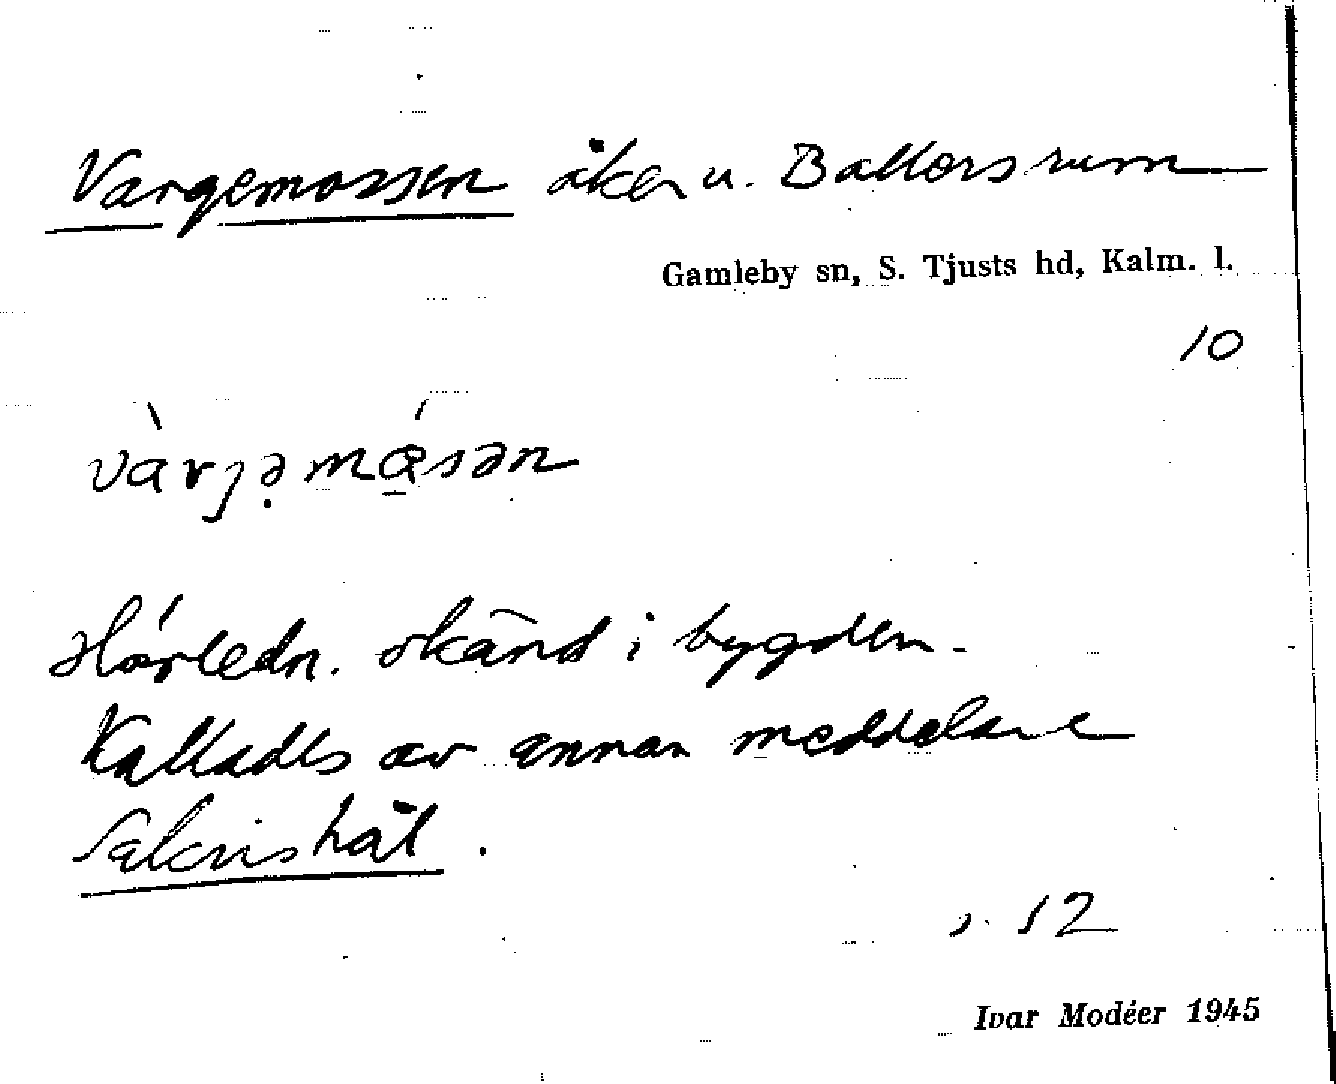 Vargemossen åker u. Ballersrum
Gamleby sn, S. Tjusts hd, Kalm. l.
10
vàrjəmɑ́sən
Härledn. okänd i bygden.
Kallades av annan meddelare
Sakrishål.
s. 52
Ivar Modéer 1945